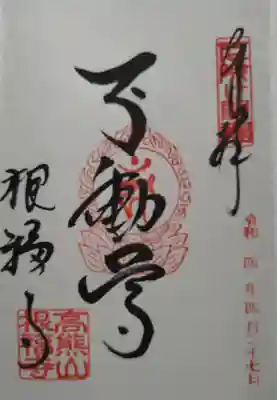 奉拝
令和 四 年 四 月 二十七日
不動尊
根福寺
高熊山
根福寺